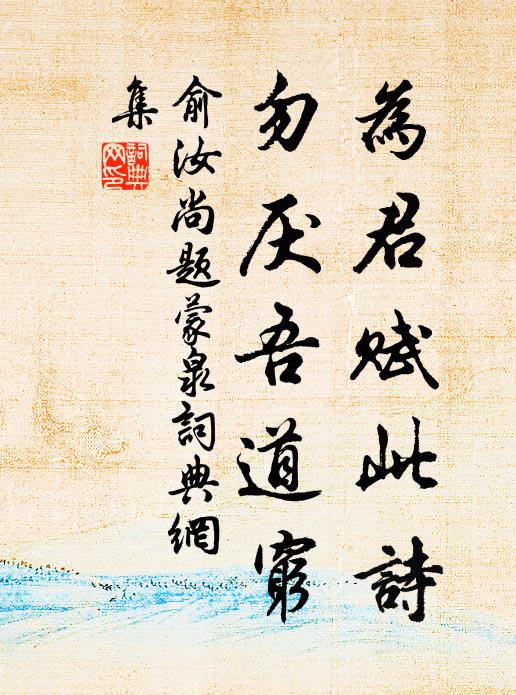 為君賦此詩
勿厌吾道窮
俞汝尚題蒙泉詞典網
集
詞典
网印